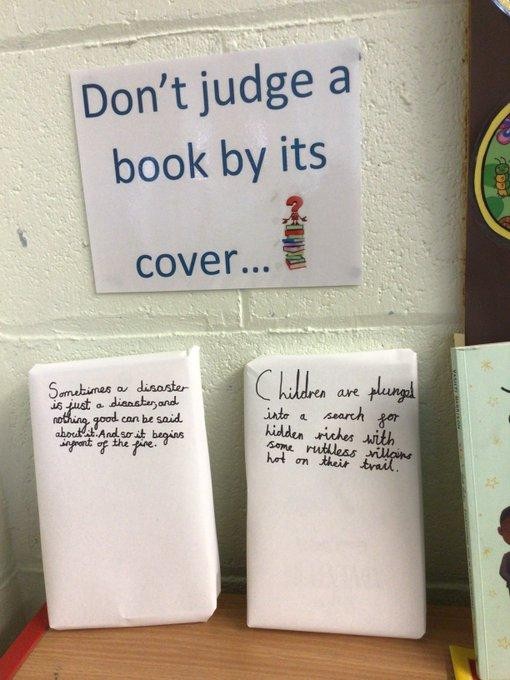 Don't judge a
book by its
cover...
?
Sometimes a disaster
is just a disaster, and
nothing good can be said
about it. And so it begins
infront of the fire.
Children are plunged
into a search for
hidden riches with
some ruthless villains
hot on their trail.